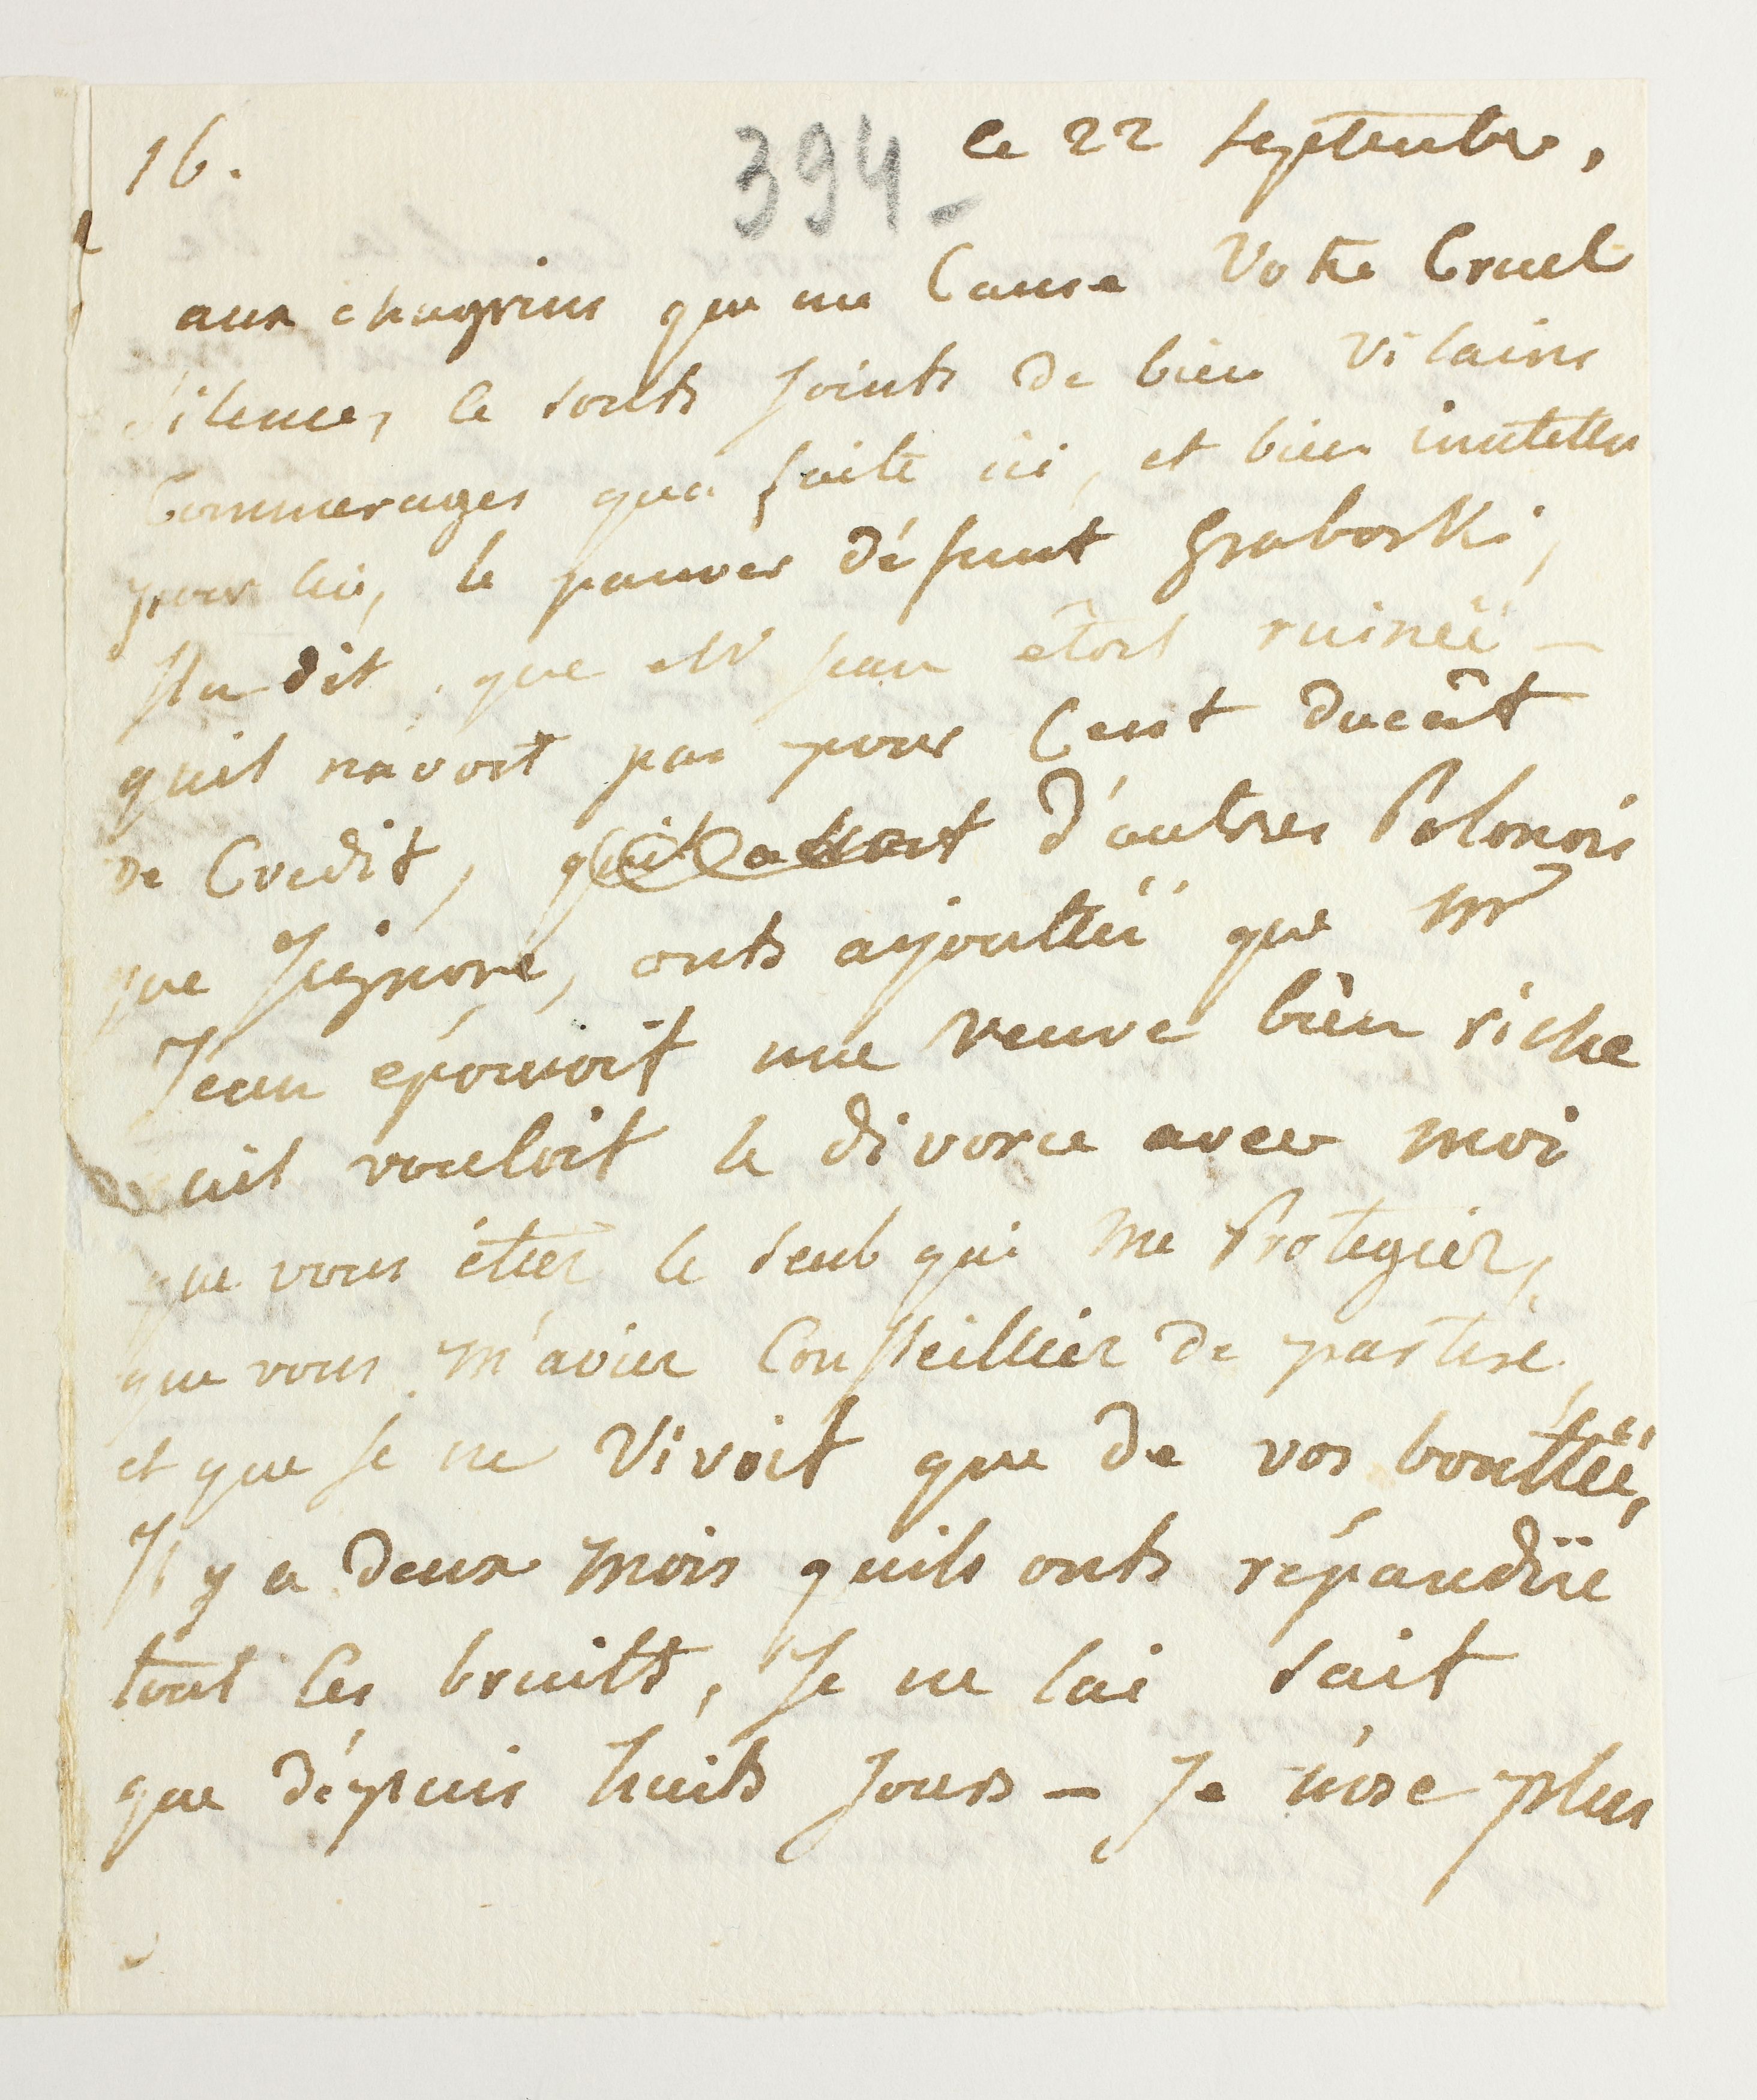 16.
394 -
le 22 septembre,
aux chagrins que me Cause Votre Cruel
silence, ce sonts joints de bien vilains
Commerages qua faite ici, et bien inutelles
pour lui, le pauvre défunt Graboski,
Il a dit que Mr jean êtoit ruineë -
quil n'avoit pas pour Cent ducât
de Credit, d'autres Polonois
que J'ignore, onts ajoutteë que Mr
Jean epousoit une veuve bien riche
quil vouloit le divorce avec moi
que vous étiez le seul qui me Protegiez,
que vous m'aviez Conseillier de partire
et que je ne Vivoit que de vos boutteë,
Il y a deux mois quils onts répandüe
tout Ces bruits, Je ne lai sait
que dépuis huits jours - Je n'ose plus